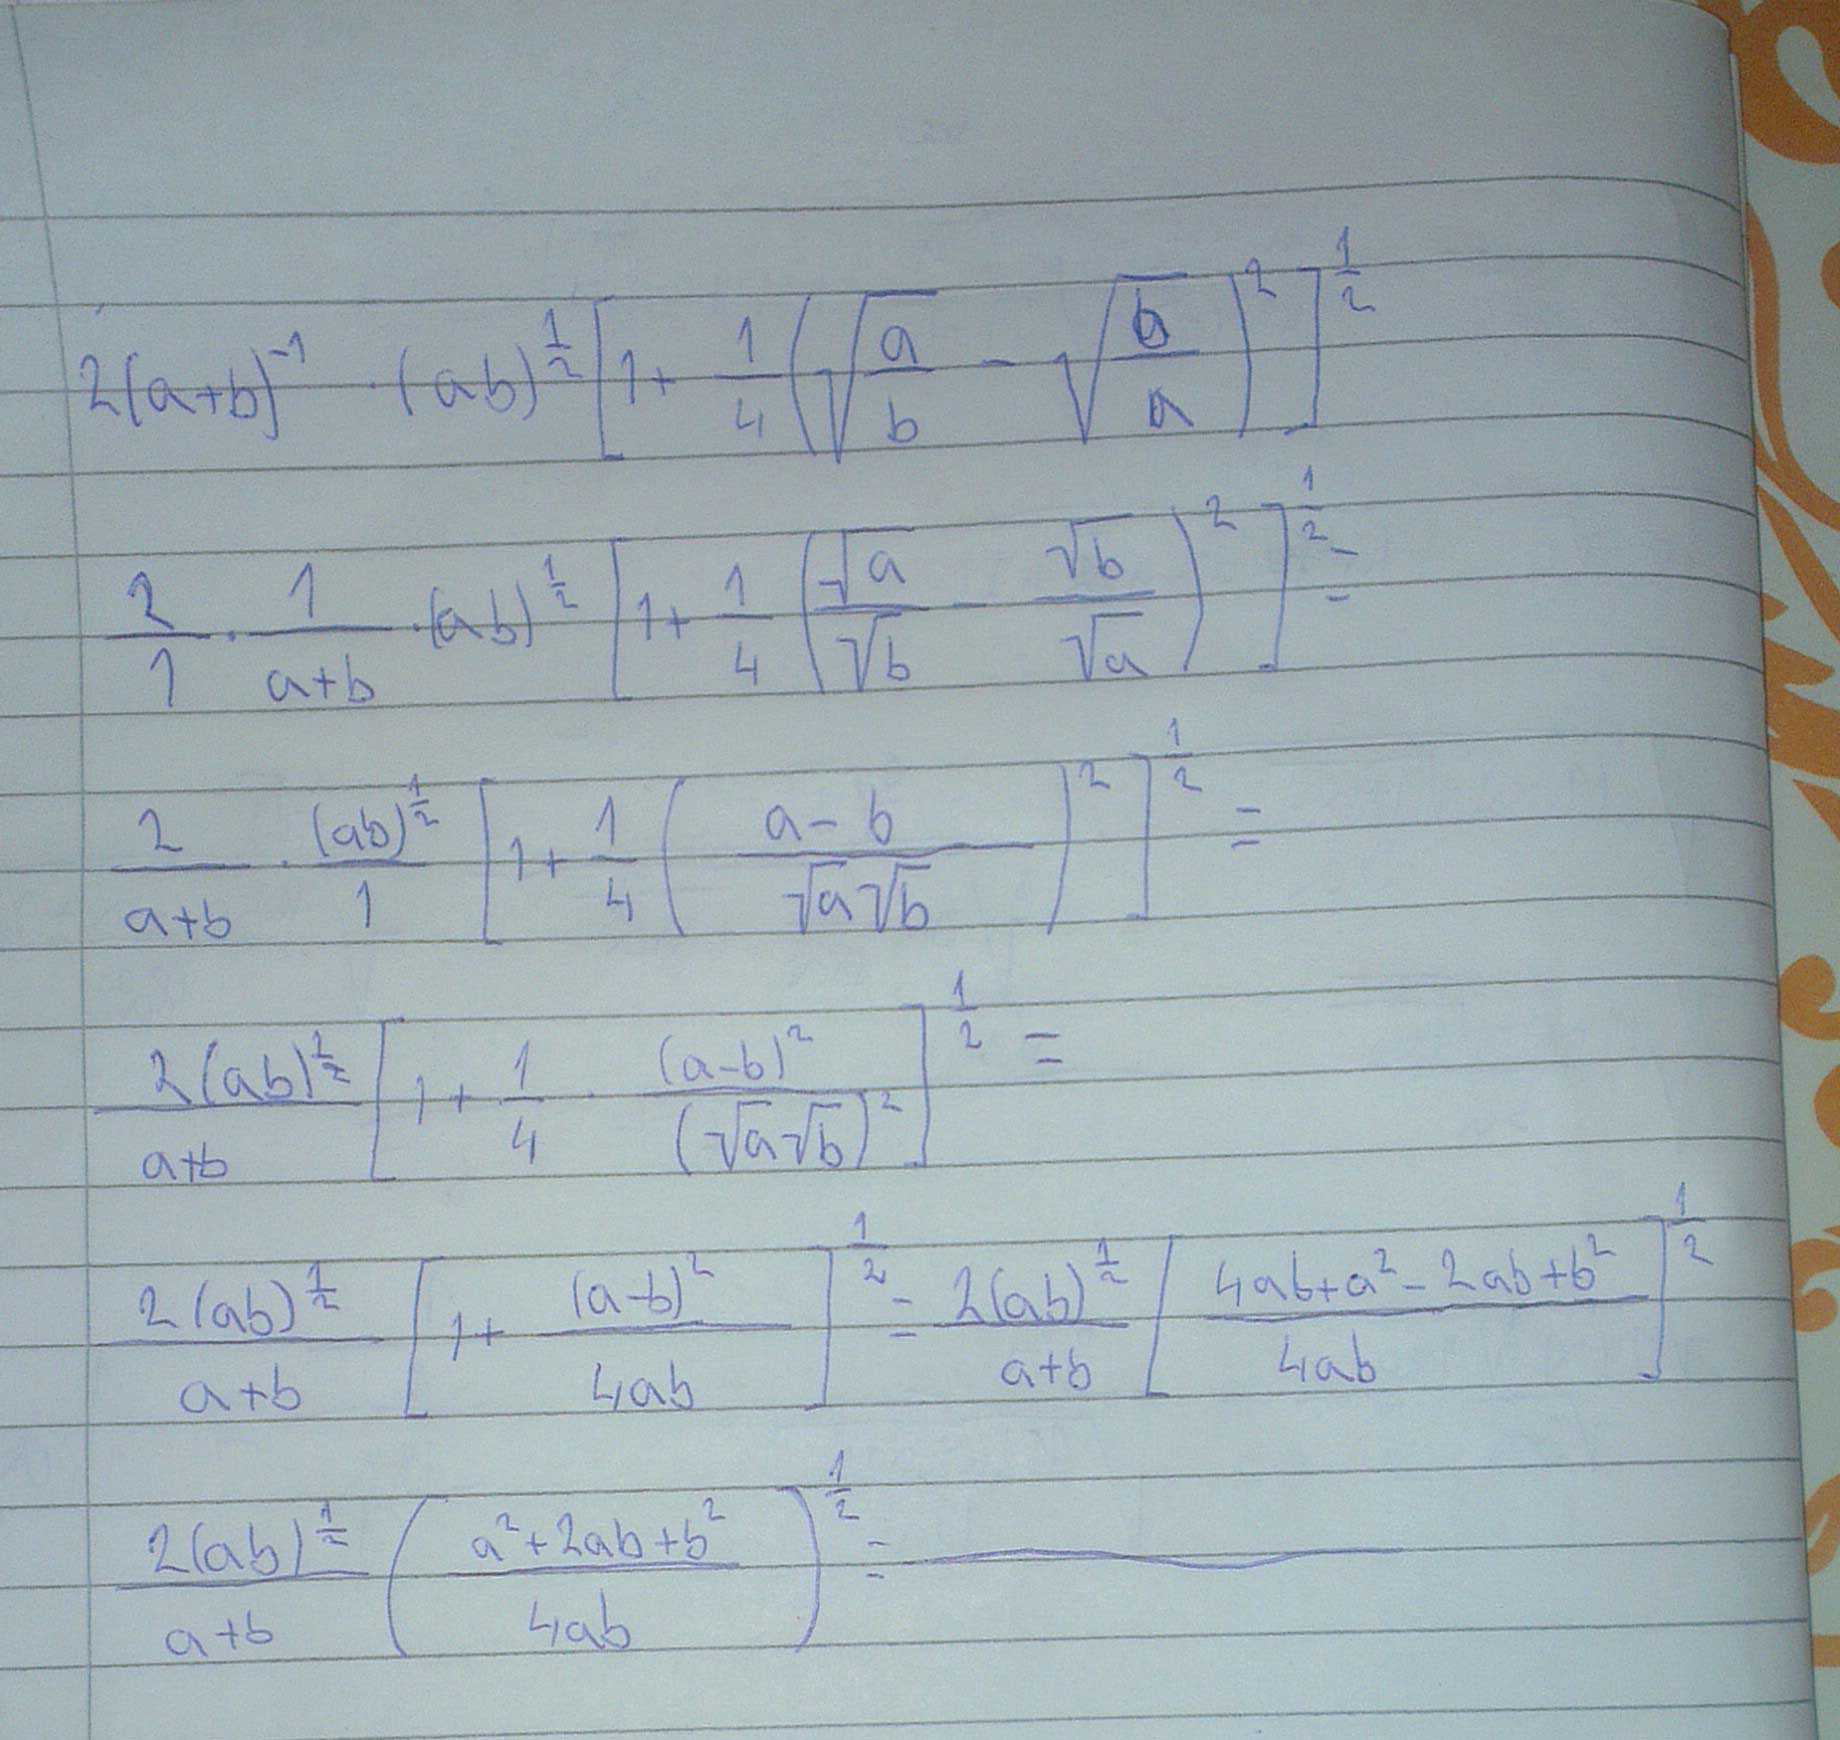 2(a+b)^{-1} · (ab)^{\frac{1}{2}} [1+ \frac{1}{4} (\sqrt{\frac{a}{b}} - \sqrt{\frac{b}{a}})^2]^{\frac{1}{2}}
\frac{2}{1} · \frac{1}{a+b} · (ab)^{\frac{1}{2}} [1+ \frac{1}{4} (\frac{\sqrt{a}}{\sqrt{b}} - \frac{\sqrt{b}}{\sqrt{a}})^2]^{\frac{1}{2}} =
\frac{2}{a+b} · \frac{(ab)^{\frac{1}{2}}}{1} [1+ \frac{1}{4} (\frac{a-b}{\sqrt{a}\sqrt{b}})^2]^{\frac{1}{2}} =
\frac{2(ab)^{\frac{1}{2}}}{a+b} [1+ \frac{1}{4} · \frac{(a-b)^2}{(\sqrt{a}\sqrt{b})^2}]^{\frac{1}{2}} =
\frac{2(ab)^{\frac{1}{2}}}{a+b} [1+ \frac{(a-b)^2}{4ab}]^{\frac{1}{2}} = \frac{2(ab)^{\frac{1}{2}}}{a+b} [\frac{4ab+a^2-2ab+b^2}{4ab}]^{\frac{1}{2}}
\frac{2(ab)^{\frac{1}{2}}}{a+b} (\frac{a^2+2ab+b^2}{4ab})^{\frac{1}{2}} =